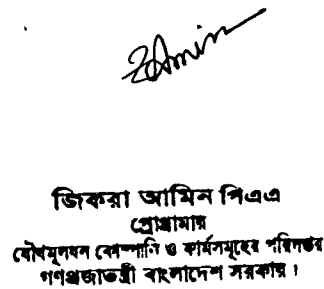 ZAmin
জিকরা আমিন পিএএ
প্রোগ্রামার
যৌথমূলধন কোম্পানি ও ফার্মসমূহের পরিদপ্তর
গণপ্রজাতন্ত্রী বাংলাদেশ সরকার।